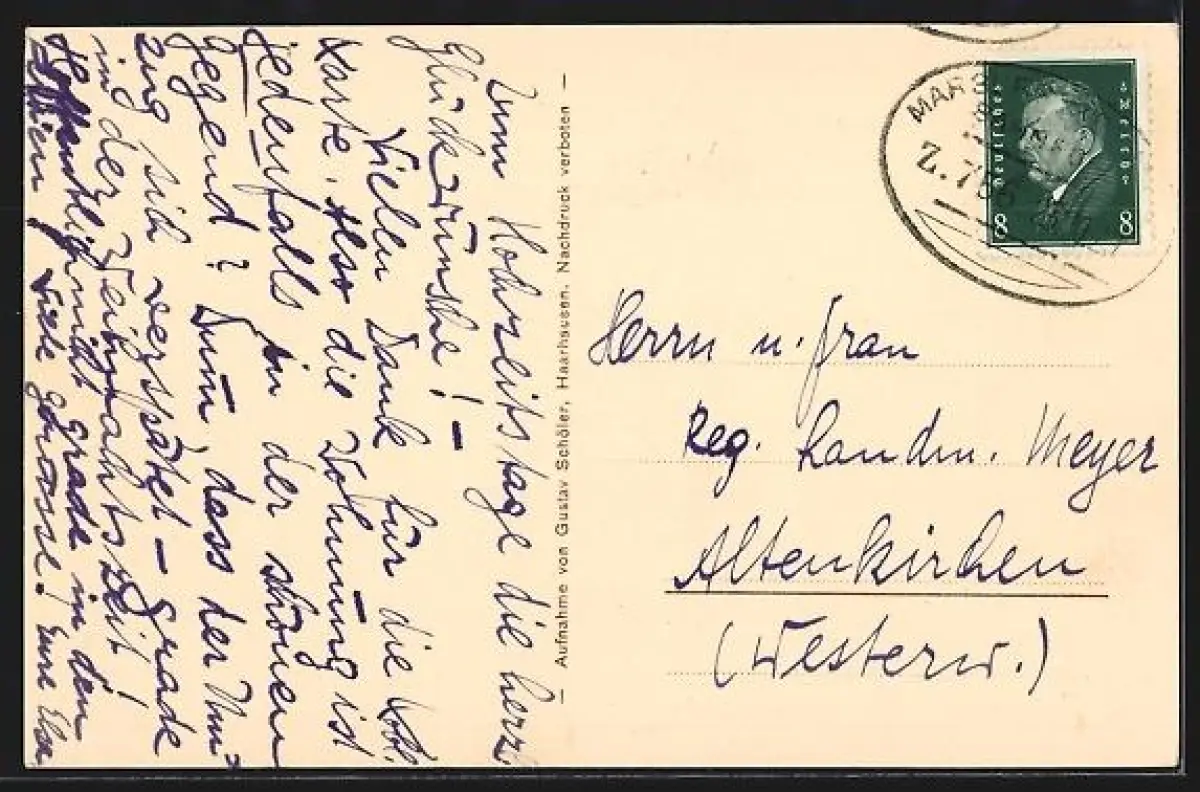 Zum Hochzeitstage die herzl.
Glückwünsche! –
Vielen Dank für die
Karte. Also die Wohnung ist
jedenfalls in der schönen
Gegend? Dumm, dass der Um-
zug sich verspätet – grade
in der Weihnachtszeit!
Hoffentlich nicht grade in den
Viele grüsse! Eure Elsa
– Aufnahme von Gustav Schöler, Haarhausen. Nachdruck verboten –
MAR
Z.
Deutsches Reich
8 8
Herrn u. Frau
Reg. Landm. Meyer
Altenkirchen
(Westerw.)